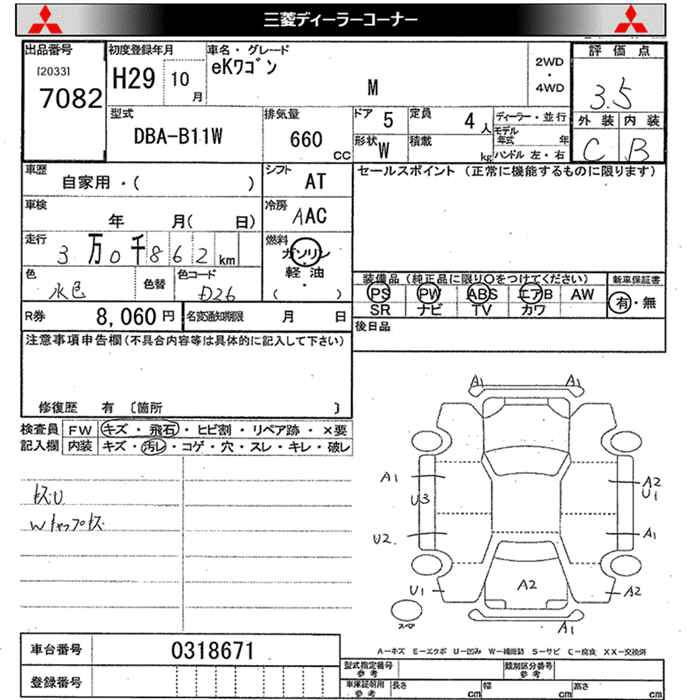 三菱ディーラーコーナー
出品番号 初度登録年月 車名・グレード 評価点
[2033]
7082
H29 10月
eKワゴン
M
2WD
・
4WD
3.5
型式 排気量 ドア 定員 ディーラー・並行 外装 内装
DBA-B11W 660 CC 5 4人 モデル年式 年 C B
形状 W 積載 kg ハンドル 左・右
車歴 シフト セールスポイント (正常に機能するものに限ります)
自家用・( ) AT
車検 年 月( 日) 冷房 AAC
走行 3万0千862km 燃料 ガソリン・軽油 ( )
色 水色 色替 色コード D26
装備品 (純正品に限り○をつけてください) 新車保証書
PS PW ABS エアB AW 有・無
SR ナビ TV カワ
R券 8,060円 名変通知期限 月 日
後日品
注意事項申告欄(不具合内容等は具体的に記入して下さい)
修復歴 有 〔箇所 〕
検査員 FW キズ・飛石・ヒビ割・リペア跡・×要
記入欄 内装 キズ・汚レ・コゲ・穴・スレ・キレ・破レ
A1 A1
A1 U3 A2 U1
U2 A1
U1 A2 A2
スペア
A1
A-キズ E-エクボ U-凹み W-補修跡 S-サビ C-腐食 XX-交換済
車台番号 0318671
型式指定番号 参考 類別区分番号 参考
登録番号
車庫証明用 参考 長さ cm 幅 cm 高さ cm